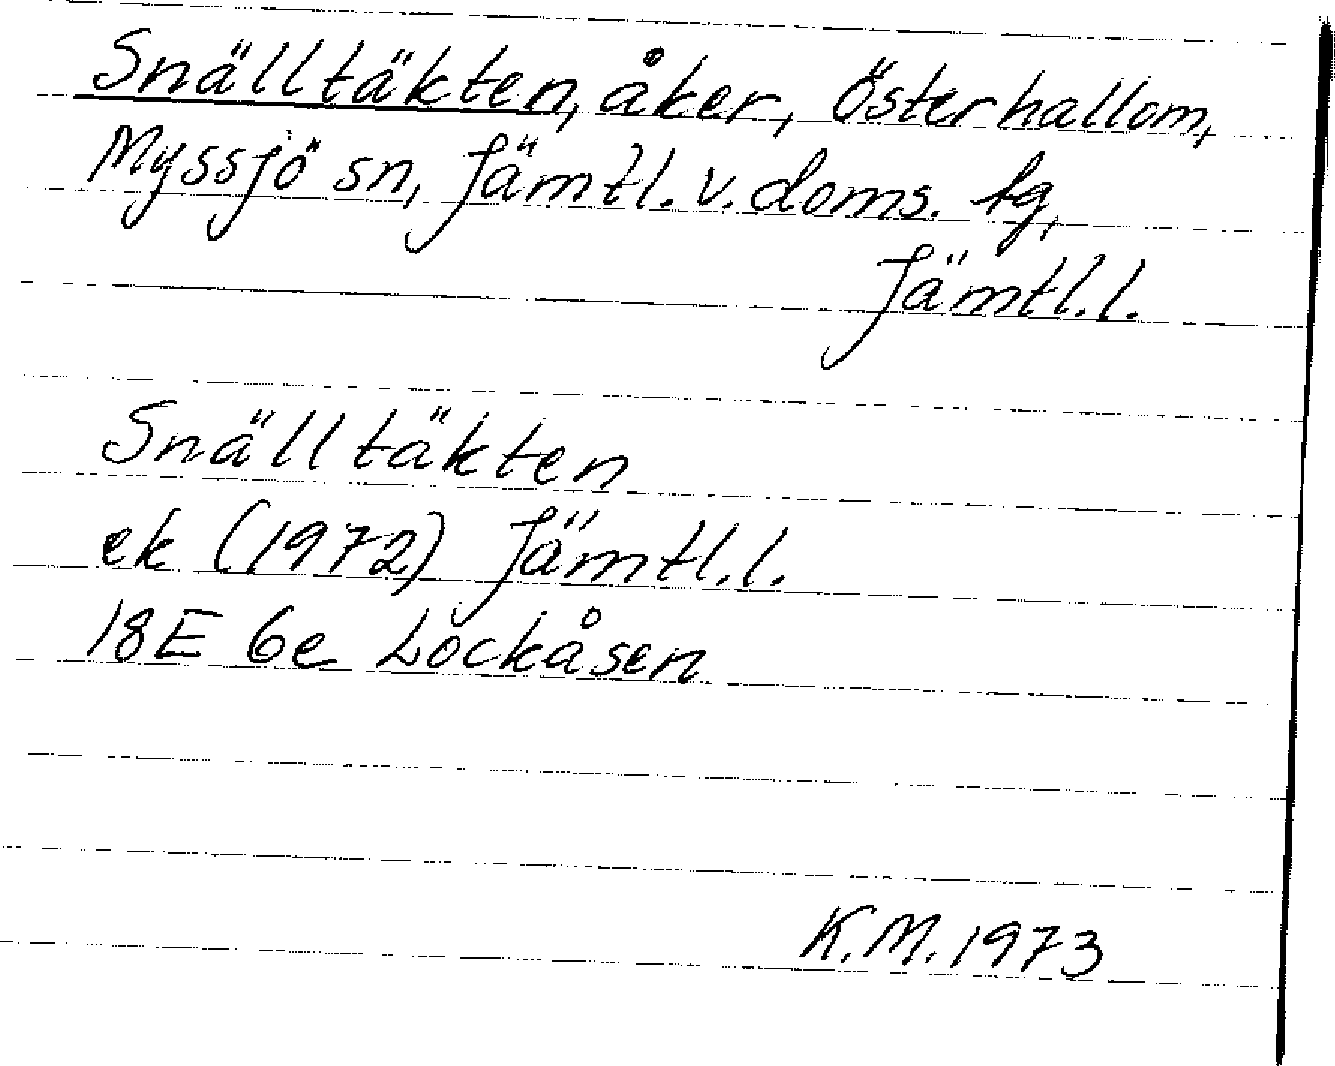 Snälltäkten, åker, Österhallom,
Myssjö sn, Jämtl. v. doms. tg,
Jämtl. l.
Snälltäkten
ek (1972) Jämtl. l.
18E 6e Lockåsen
K.M. 1973